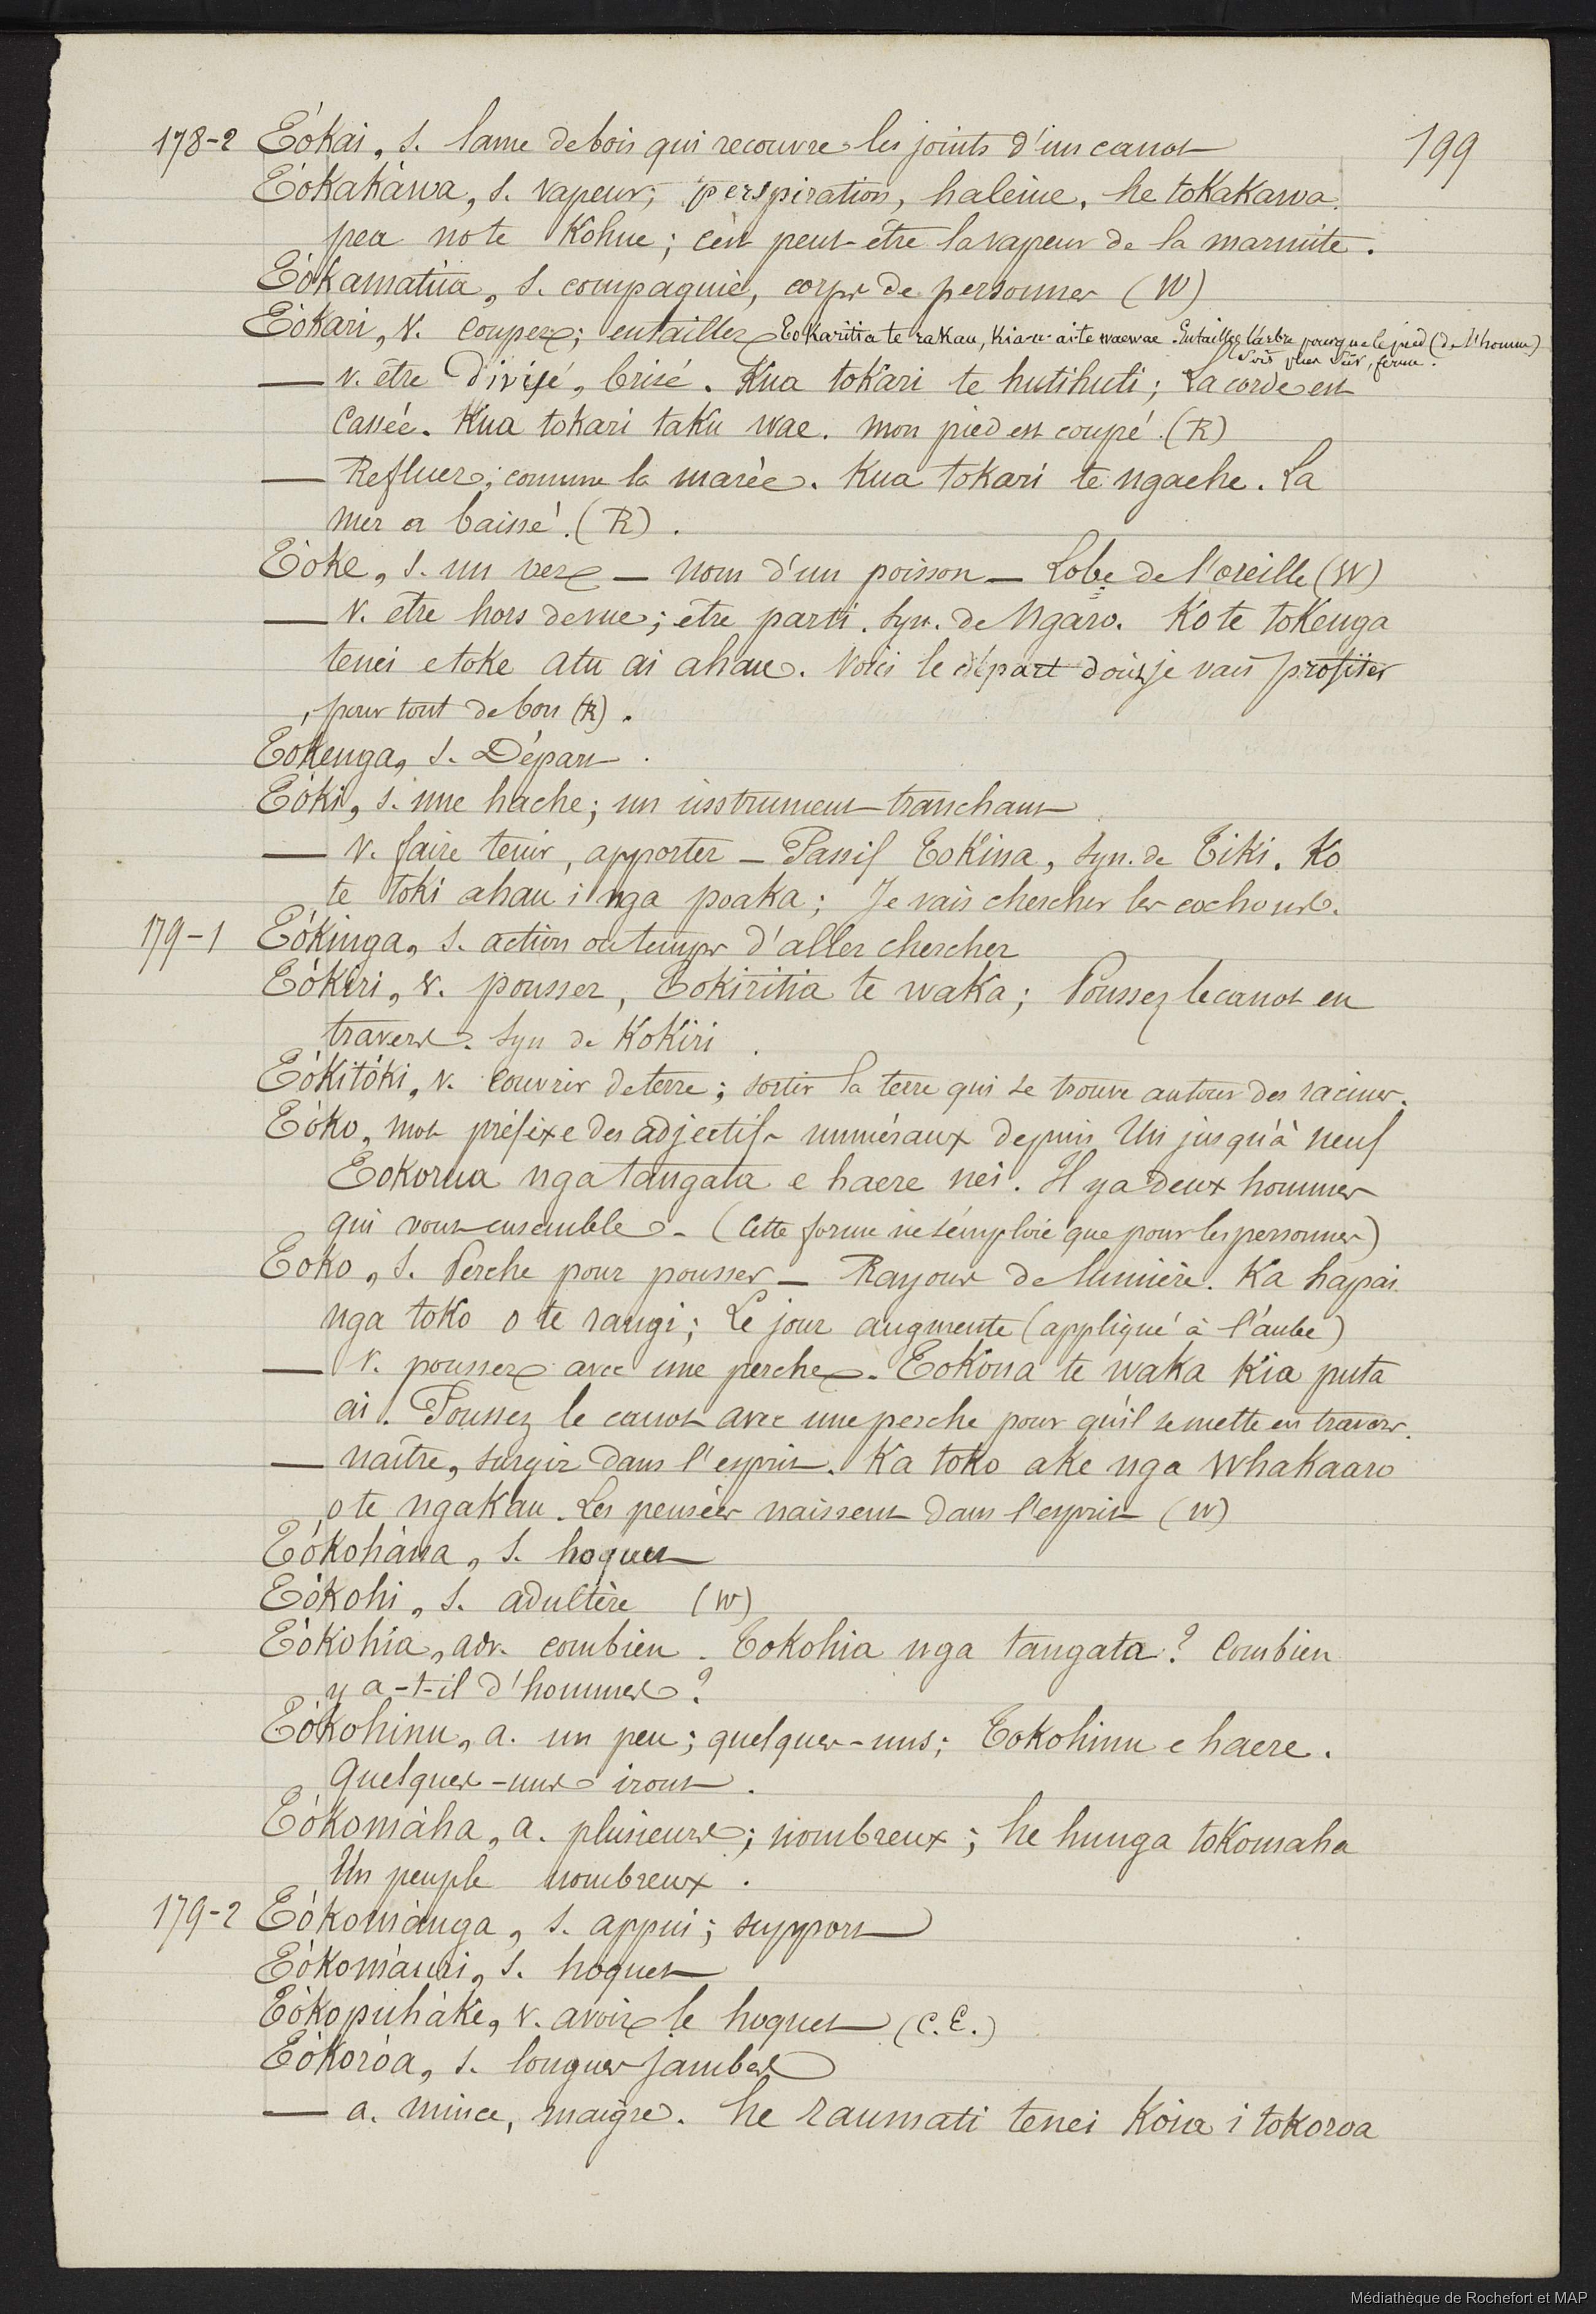 178-2 Tókai, s. lame de bois qui recouvre les joints d'un canot 199
Tókakáwa, s. vapeur; perspiration, haleine, he tokakawa
pea no te Kohue; c'est peut-être la vapeur de la marmite.
Tókamatúa, s. compagnie, corps de personnes (W)
Tókari, v. couper; entailler Tokaritia te rakau, kia u ai te waewae Entaillez l'arbre pour que le pied (de l'homme)
sois plus sûr, ferme.
— v. être divisé, brisé. Kua tokari te hutihuti; La corde est
cassée. Kua tokari taku wae. mon pied est coupé. (R)
— Refluer; comme la marée. Kua tokari te ngaehe. La
mer a baissé. (R).
Tóke, s. un ver — nom d'un poisson — Lobe de l'oreille (W)
— v. être hors de vue; être parti. Syn. de Ngaro. Ko te tokenga
tenei e toke atu ai ahau. Voici le départ dont je vais profiter
pour tout de bon (R).
Tokenga, s. Départ.
Tóki, s. une hache; un instrument tranchant
— v. faire tenir, apporter — Passif Tokina, syn. de Tiki. Ko
te toki ahau i nga poaka; Je vais chercher les cochons.
179-1 Tókinga, s. action ou temps d'aller chercher
Tókiri, v. pousser, Tokiritia te waka; Poussez le canot en
travers. Syn de Kokiri.
Tókitóki, v. couvrir de terre; sortir la terre qui se trouve autour des racines.
Tóko, mot préfixe des adjectifs numéraux depuis Un jusqu'à neuf
Tokorua nga tangata e haere nei. Il y a deux hommes
qui vont ensemble. — (Cette forme ne s'emploie que pour les personnes)
Toko, s. Perche pour pousser — Rayons de lumière. Ka hapai
nga toko o te rangi; Le jour augmente (appliqué à l'aube)
— v. pousser avec une perche. Tokona te waka kia puta
ai. Poussez le canot avec une perche pour qu'il se mette en travers.
— naître, surgir dans l'esprit. Ka toko ake nga whakaaro
o te ngakau. Les pensées naissent dans l'esprit (W)
Tókohána, s. hoquet
Tókohi, s. adultère (W)
Tókohia, adv. combien. Tokohia nga tangata? Combien
y a-t-il d'hommes?
Tókohinu, a. un peu; quelques-uns; Tokohinu e haere.
Quelques-uns iront.
Tókomáha, a. plusieurs; nombreux; he hunga tokomaha
Un peuple nombreux.
179-2 Tókománga, s. appui; support
Tókomáuri, s. hoquet
Tókopuháke, v. avoir le hoquet (C.E.)
Tókoróa, s. longues jambes
— a. mince, maigre. he raumati tenei koia i tokoroa
Médiathèque de Rochefort et MAP